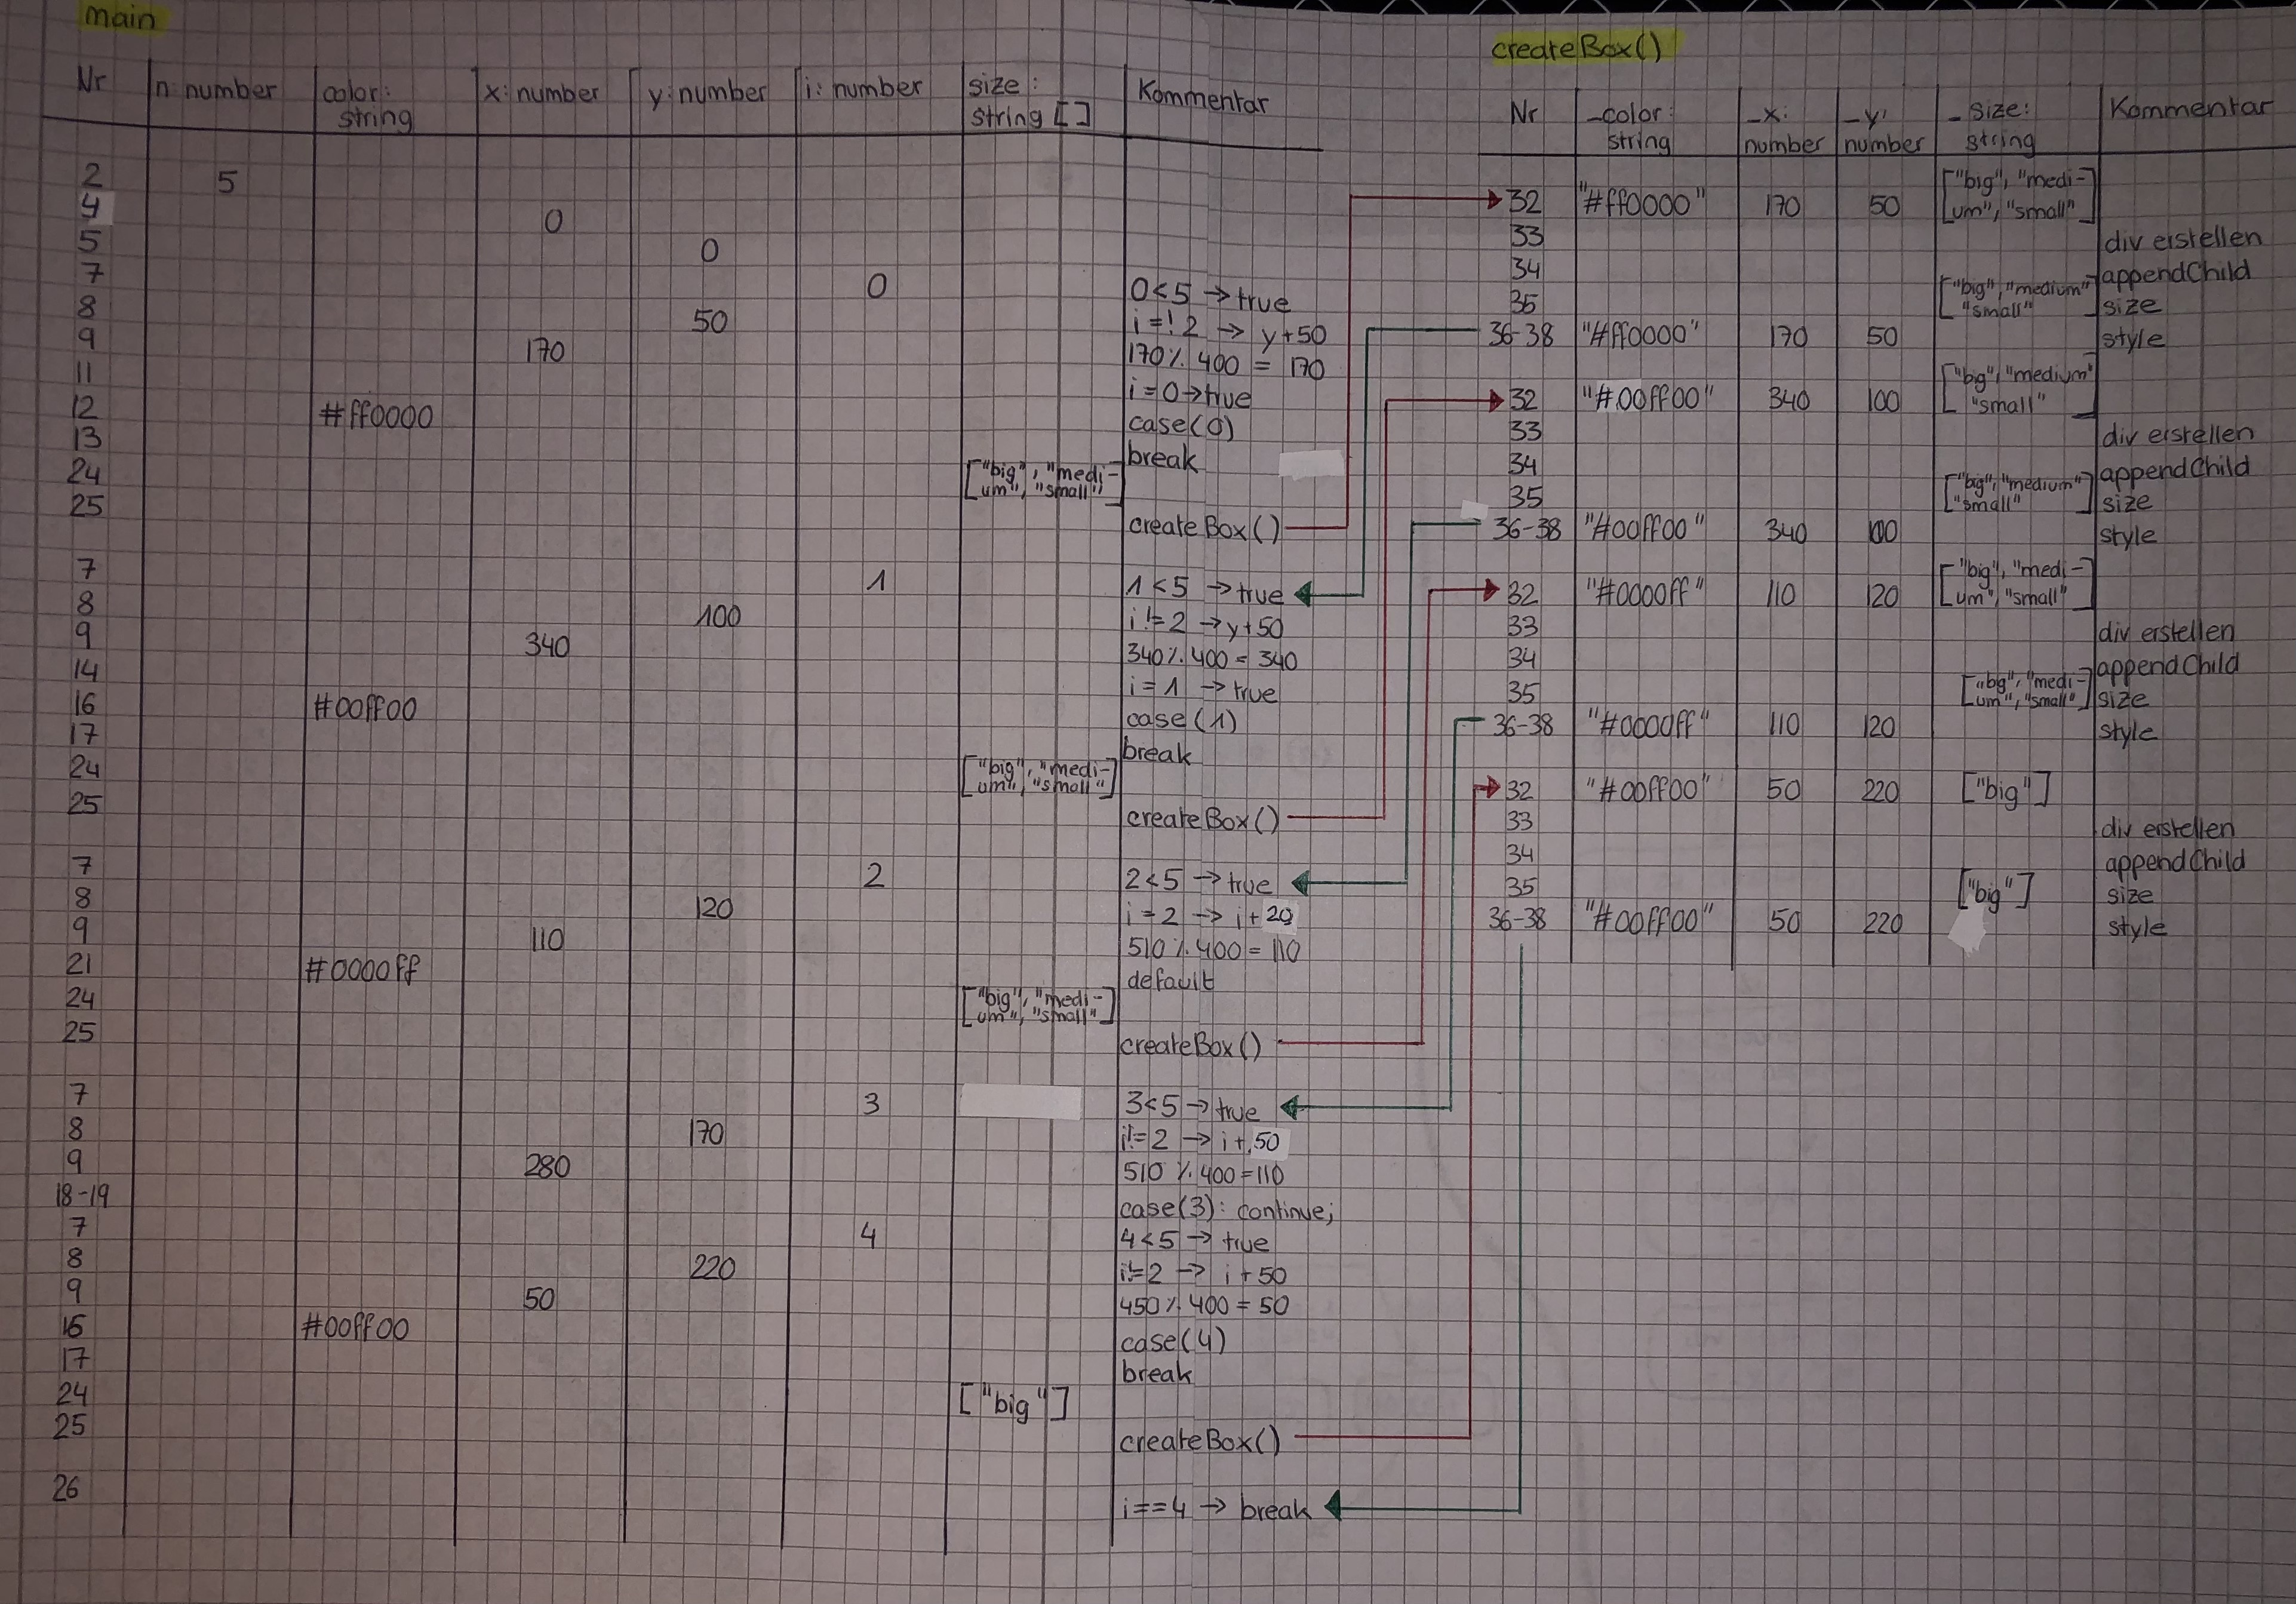 main
Nr | n: number | color: string | x: number | y: number | i: number | size: string [] | Kommentar
2 | 5
4 | 0
5 | 0
7 | 0 | 0<5 → true
8 | 50 | i =! 2 → y+50
9 | 170 | 170 % 400 = 170
11 | i = 0 → true
12 | #ff0000 | case(0)
13 | break
24 | ["big", "medi-um", "small"]
25 | createBox()
7 | 1 | 1<5 → true
8 | 100 | i != 2 → y+50
9 | 340 | 340 % 400 = 340
14 | i = 1 → true
16 | #00ff00 | case(1)
17 | break
24 | ["big", "medi-um", "small"]
25 | createBox()
7 | 2 | 2<5 → true
8 | 120 | i = 2 → i + 20
9 | 110 | 510 % 400 = 110
21 | #0000ff | default
24 | ["big", "medi-um", "small"]
25 | createBox()
7 | 3 | 3<5 → true
8 | 170 | i != 2 → i + 50
9 | 280 | 510 % 400 = 110
18-19 | case(3): continue;
7 | 4 | 4<5 → true
8 | 220 | i != 2 → i + 50
9 | 50 | 450 % 400 = 50
16 | #00ff00 | case(4)
17 | break
24 | ["big"]
25 | createBox()
26 | i==4 → break
createBox()
Nr | _color: string | _x: number | _y: number | _size: string | Kommentar
32 | "#ff0000" | 170 | 50 | ["big", "medi-um", "small"]
33 | div erstellen
34 | appendChild
35 | ["big", "medium" "small"] | size
36-38 | "#ff0000" | 170 | 50 | style
32 | "#00ff00" | 340 | 100 | ["big", "medium" "small"]
33 | div erstellen
34 | appendChild
35 | ["big", "medium" "small"] | size
36-38 | "#00ff00" | 340 | 100 | style
32 | "#0000ff" | 110 | 120 | ["big", "medi-um", "small"]
33 | div erstellen
34 | appendChild
35 | ["big", "medi-um", "small"] | size
36-38 | "#0000ff" | 110 | 120 | style
32 | "#00ff00" | 50 | 220 | ["big"]
33 | div erstellen
34 | appendChild
35 | ["big"] | size
36-38 | "#00ff00" | 50 | 220 | style